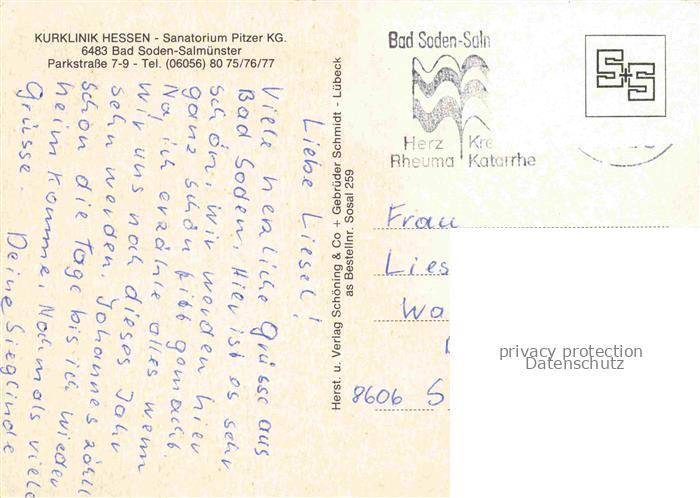 KURKLINIK HESSEN - Sanatorium Pitzer KG.
6483 Bad Soden-Salmünster
Parkstraße 7-9 - Tel. (06056) 80 75/76/77
Liebe Liesel!
Viele herzliche Grüsse aus
Bad Soden. Hier ist es sehr
schön, wir werden hier
ganz schön fitt gemacht.
Na ich erzähle alles wenn
wir uns noch dieses Jahr
sehn werden. Johannes zählt
schon die Tage bis ich wieder
heim komme. Nochmals viele
Grüsse.
Deine Sieglinde
Herst. u. Verlag Schöning & Co + Gebrüder Schmidt - Lübeck
as Bestellnr. Sosal 259
Bad Soden-Saln
Herz Kre
Rheuma Katarrhe
S+S
Frau
Lies
Wa
8606 S
privacy protection
Datenschutz